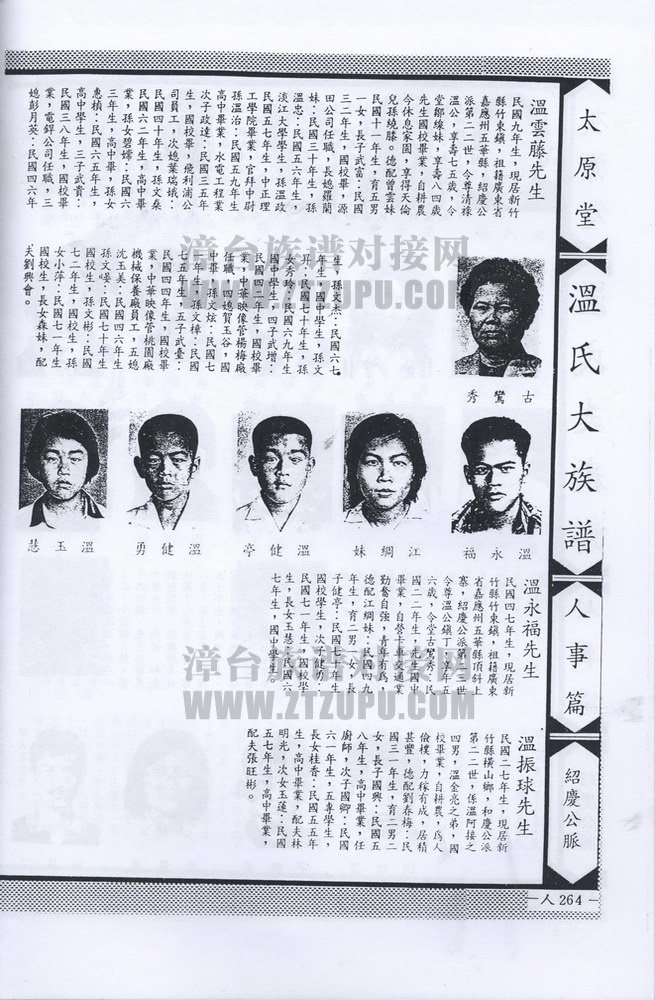 太原堂
溫氏大族譜
人事篇
紹慶公脈
溫雲藤先生
民國九年生，現居新竹
縣竹東鎮，祖籍廣東省
嘉應州五華縣，紹慶公
派第二二世，令尊清祿
溫公，享壽七五歲，令
堂鄒線妹，享壽八四歲
先生國校畢業，自耕農
今休息家園，享得天倫
兒孫繞膝。德配曾雲妹
民國十一年生，育五男
一女，長子武富：民國
三二年生，國校畢，源
田公司任職，長媳羅蘭
妹：民國三十年生，孫
溫忠：民國五六年生，
淡江大學學生，孫溫政
民國五七年生，中正理
工學院畢業，官拜中尉
孫溫治：民國五九年生
高中畢業，水電工程業
次子政達：民國三五年
生，國校畢，飛利浦公
司員工，次媳葉瑞娥：
民國四十年生，孫文燊
民國六二年生，高中畢
業，孫女碧嫦：民國六
三年生，高中畢，孫女
惠楨：民國六五年生，
高中學生，三子武貴：
民國三八年生，國校畢
業，電鋅公司任職，三
媳彭月英：民國四六年
生，孫文杰：民國六七
年生，國中學生，孫文
昇：民國七十年生，孫
女秀玲：民國六九年生
國中學生，四子武增：
民國四二年生，國校畢
業，中華映像管楊梅廠
任職，四媳賀玉谷，國
中畢，孫文炫：民國七
十年生，孫文樟：民國
七五年生，五子武臺：
民國四四年生，國校畢
業，中華映像管桃園廠
機械保養廠員工，五媳
沈玉美：民國四六年生
孫文晏：民國七十年生
國校生，孫文彬：民國
七二年生，國校生，孫
女小萍：民國七一年生
國校生，長女森妹，配
夫劉興會。
古鸞秀
溫永福
江綢妹
溫健亭
溫健勇
溫玉慧
溫永福先生
民國四七年生，現居新
竹縣竹東鎮，祖籍廣東
省嘉應州五華縣頂斜上
寨，紹慶公派第二三世
令尊溫公鎮丁，享年五
六歲，令堂古鸞秀：民
國二二年生，先生國中
畢業，自營卡車交通業
勤奮自強，青年有為，
德配江綢妹：民國四九
年生，育二男一女，長
子健亭：民國七十年生
國校學生，次子健勇：
民國七一年生，國校學
生，長女玉慧：民國六
七年生，國中學生。
溫振球先生
民國二七年生，現居新
竹縣橫山鄉，和慶公派
第二二世，係溫阿接之
四男，溫金亮之弟，國
校畢業，自耕農，為人
儉樸，力稼有成，居積
甚豐，德配劉春梅：民
國三一年生，育二男二
女，長子國興：民國五
八年生，高中畢業，任
廚師，次子國卿：民國
六一年生，五專學生，
長女桂香：民國五五年
生，高中畢業，配夫林
明光，次女玉蓮：民國
五七年生，高中畢業，
配夫張旺彬。
人264
漳台族谱对接网
WWW.ZTZUPU.COM
漳台族谱对接网
WWW.ZTZUPU.COM